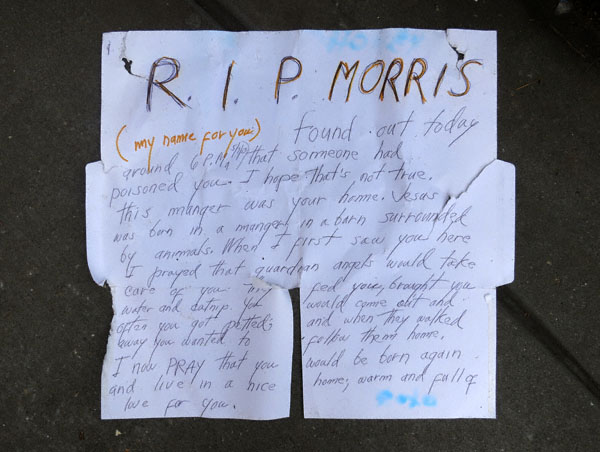 R.I.P. MORRIS
(my name for you:) Found out today
around 6 P.M. that someone had
poisoned you. I hope that's not true.
this manger was your home. Jesus
was born in a manger, in a barn surrounded
by animals. When I first saw you here
I prayed that guardian angels would take
care of you. fed you, brought you
water and catnip. would come out and
often you got petted; and when they walked
away you wanted to follow them home.
I now PRAY that you would be born again
and live in a nice home, warm and full of
love for you.